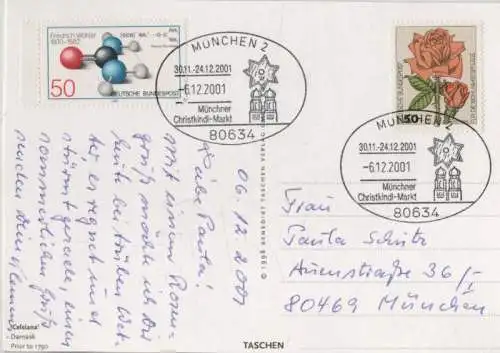 Friedrich Wöhler
1800-1882
50
DEUTSCHE BUNDESPOST
MÜNCHEN 2
30.11.-24.12.2001
-6.12.2001
Münchner
Christkindl-Markt
80634
50
MÜNCHEN 2
30.11.-24.12.2001
-6.12.2001
Münchner
Christkindl-Markt
80634
06.12.2001
Liebe Paula!
Mit einem Rosen-
gruß möchte ich Dir
heute bei trüben Wet-
ter es regnet und
stürmt gerade, einen
sommerlichen Gruß
senden
© 1996 BENEDIKT TASCHEN VERLAG
Frau
Paula Schütz
Auenstraße 36/
80469 München
'Celsiana'
- Damask
Prior to 1750
TASCHEN